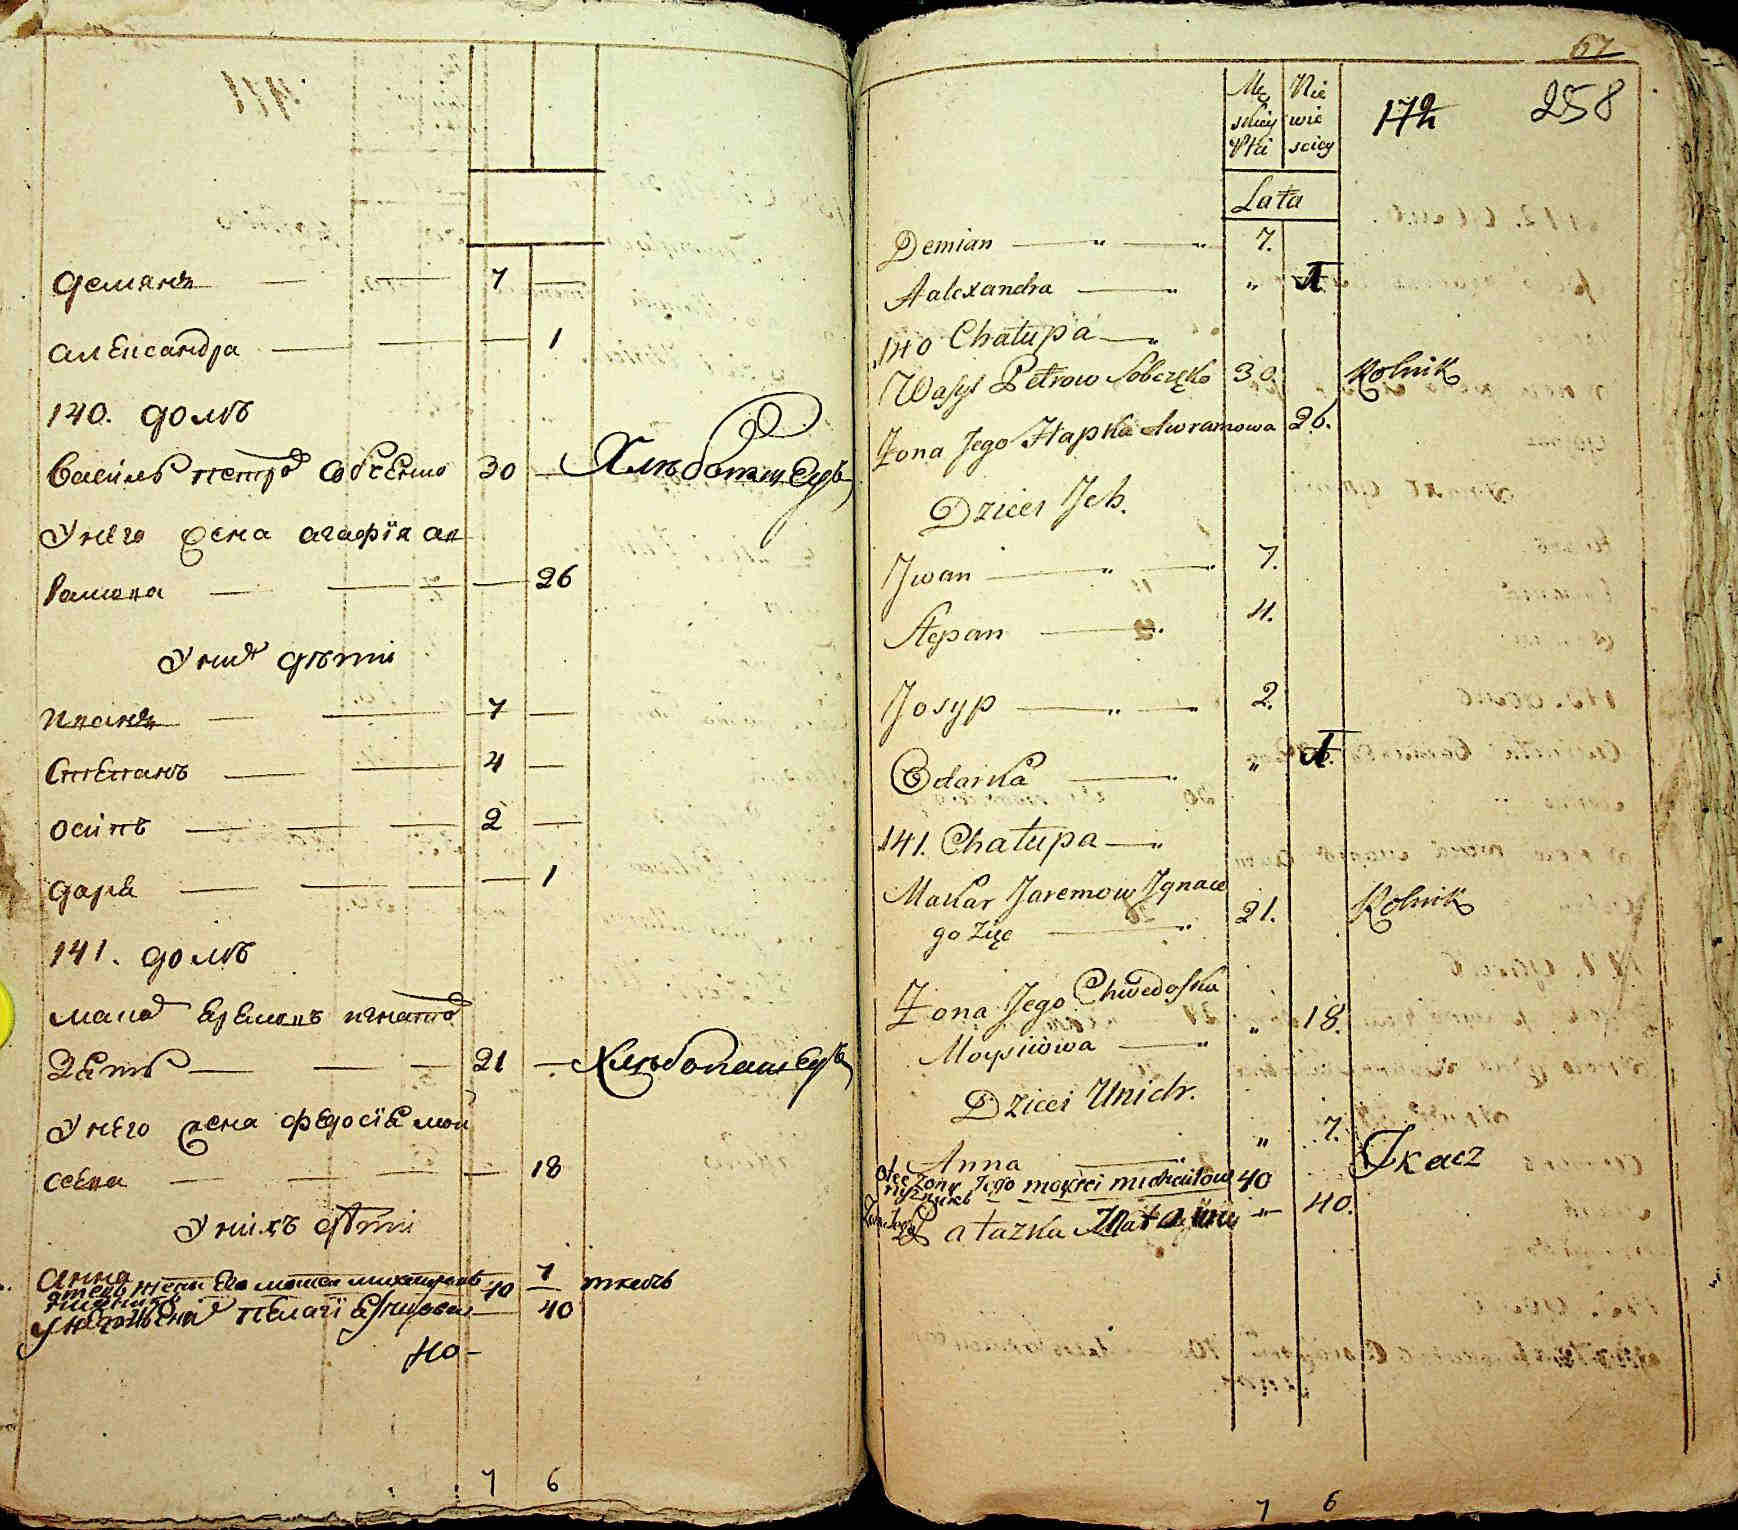 демянъ — — 7 —
александра — — — 1
140. домъ
василь петро собченко 30 — Хлѣбопашецъ
У него жена агафія ав
рамова — — — 26
У них дѣти
иванъ — — 7 —
степанъ — — 4 —
осипъ — — — 2 —
дарія — — — — 1
141. домъ
мака еремовъ игнатов
зять — — — 21 — Хлѣбопашецъ
У него жена федосія мои
сеева — — — — 18
У нихъ дѣти
анна 1
отецъ жены его мойсей михайловъ 40 — ткачъ
пелагія 40
40 -
7 6
67
Mę Nie
skiey wie
Płci sciey
172 258
Lata
Demian — „ — „ 7.
Aalexandra — „ „ 1
140 Chałupa — „
Wasyl Petrow Sobczęko 30 Rolnik
Żona Jego Hapka Awramowa 26.
Dzieci Jch.
Jwan — „ — „ 7.
Stepan — „ 4.
Josyp — „ — „ 2.
Odarka — „ „ 1.
141. Chałupa — „
Makar Jaremow Jgnace
go Zięć — „ 21. Rolnik
Żona Jego Chwedoska
Moysiiowa — „ „ 18.
Dzieci Unich.
Anna — „ 7.
Oiec Żony Jego moysei michailow 40 Tkacz
„ — 40.
7 6